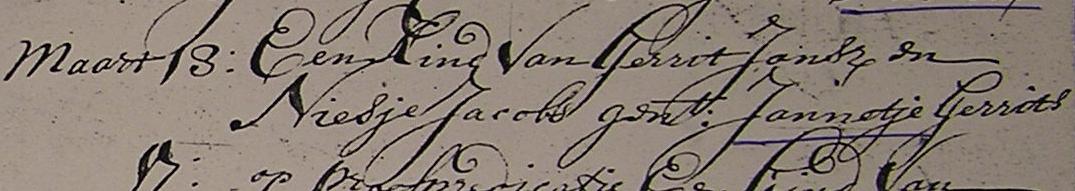 Maart 13: Een Kind Van Gerrit Jansz en
Niesje Jacobs gent: Jannetje Gerrits
17: op proefpredicatie Een Kind Van